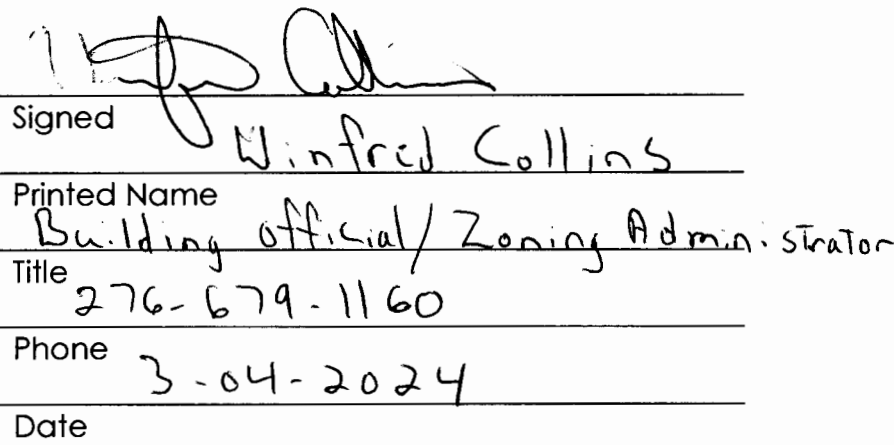 Winfred Collins
Signed
Winfred Collins
Printed Name
Building official/Zoning Administrator
Title
276-679-1160
Phone
3-04-2024
Date